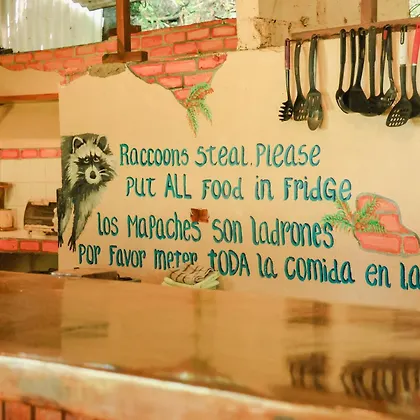 Raccoons Steal. Please
put ALL Food in Fridge
Los Mapaches son ladrones
por favor meter toda la comida en la